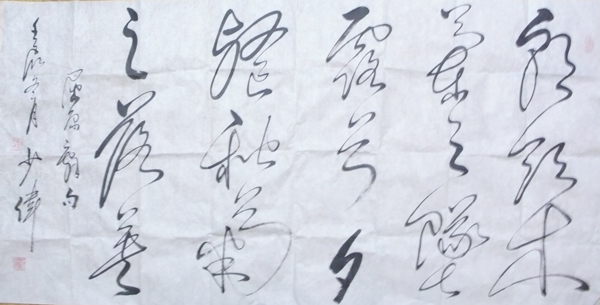 朝飲木
蘭之墜
露兮夕
餐秋菊
之落英
屈原辭句
壬辰月 少偉